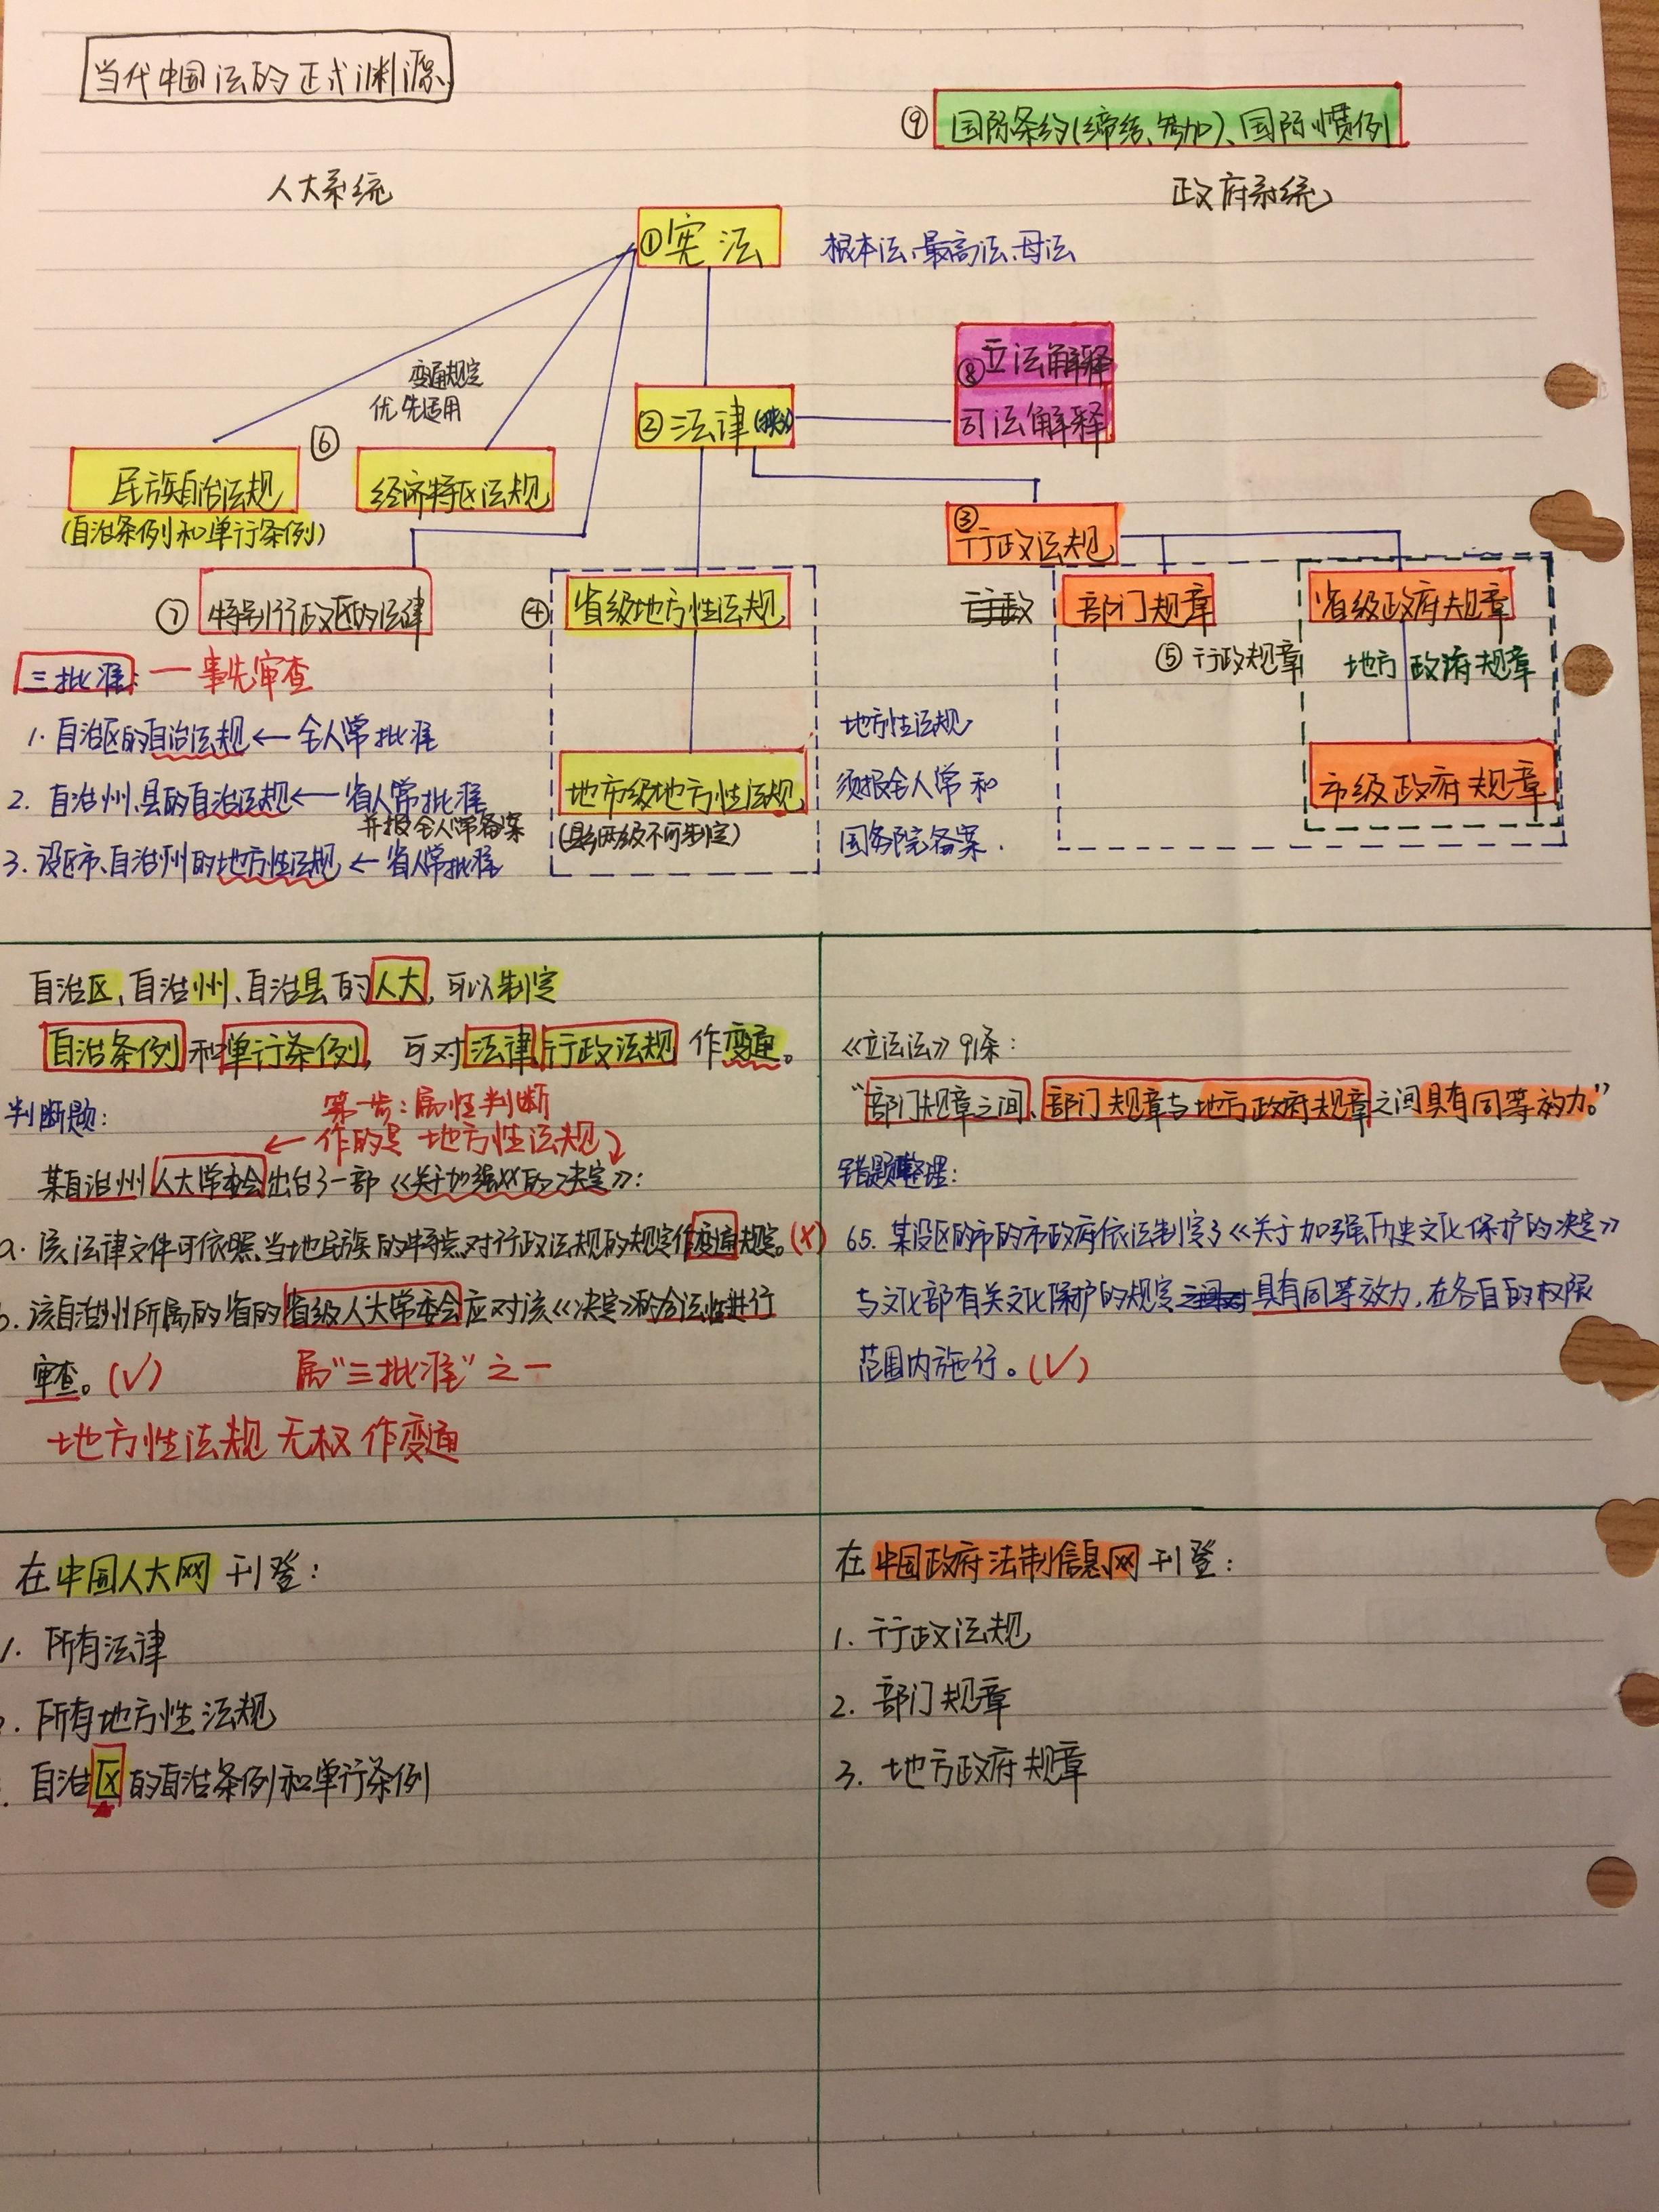 当代中国法的正式渊源
⑨ 国际条约(缔结、参加)、国际惯例
人大系统
政府系统
①宪法
根本法、最高法、母法
变通规定
优先适用
⑧立法解释
司法解释
②法律(狭义)
⑥
民族自治法规
(自治条例和单行条例)
经济特区法规
③
行政法规
⑦ 特别行政区的法律
④ 省级地方性法规
部门规章
省级政府规章
⑤行政规章
地方政府规章
三批准: 一事先审查
1. 自治区的自治法规←全人常批准
2. 自治州、县的自治法规←省人常批准
并报全人常备案
3. 设区市、自治州的地方性法规←省人常批准
地市级地方性法规
(县乡两级不可制定)
地方性法规
须报全人常和
国务院备案.
市级政府规章
自治区,自治州、自治县的人大,可以制定
自治条例和单行条例,可对法律行政法规作变通。
判断题:
第一步:属性判断
←作的是 地方性法规
某自治州人大常委会出台了一部《关于加强XX的决定》:
a. 该法律文件可依照当地民族的特点对行政法规的规定作变通规定。(X)
b. 该自治州所属的省的省级人大常委会应对该《决定》的合法性进行
审查。(√) 属“三批准”之一
地方性法规无权作变通
《立法法》91条:
“部门规章之间、部门规章与地方政府规章之间具有同等效力。”
错题整理:
65. 某设区的市的市政府依法制定了《关于加强历史文化保护的决定》
与文化部有关文化保护的规定具有同等效力,在各自的权限
范围内施行。(√)
在中国人大网刊登:
1. 所有法律
. 所有地方性法规
. 自治区的自治条例和单行条例
在中国政府法制信息网刊登:
1. 行政法规
2. 部门规章
3. 地方政府规章